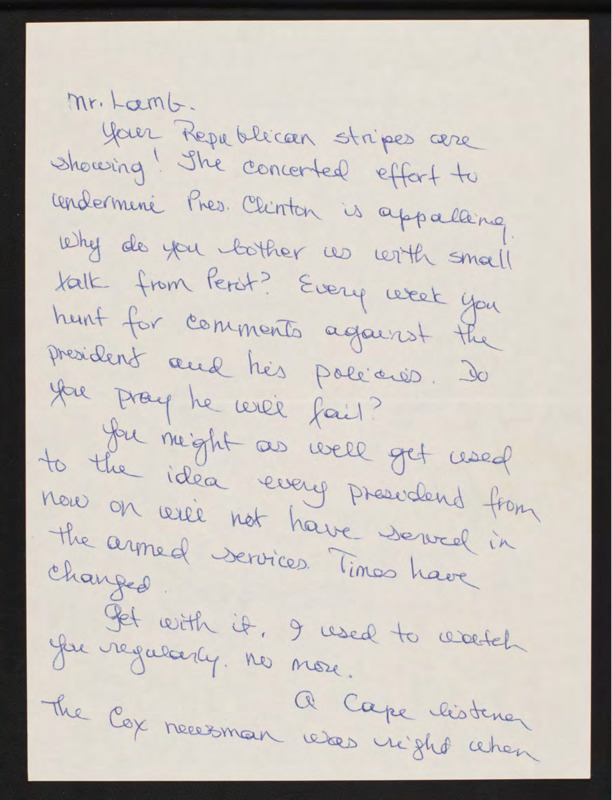 Mr. Lamb.
Your Republican stripes are
showing! The concerted effort to
undermine Pres. Clinton is appalling.
Why do you bother us with small
talk from Perot? Every week you
hunt for comments against the
president and his policies. Do
you pray he will fail?
You might as well get used
to the idea every presidend from
now on will not have served in
the armed services. Times have
changed.
Get with it. I used to watch
you regularly. no more.
A Cape listener
The Cox newsman was right when